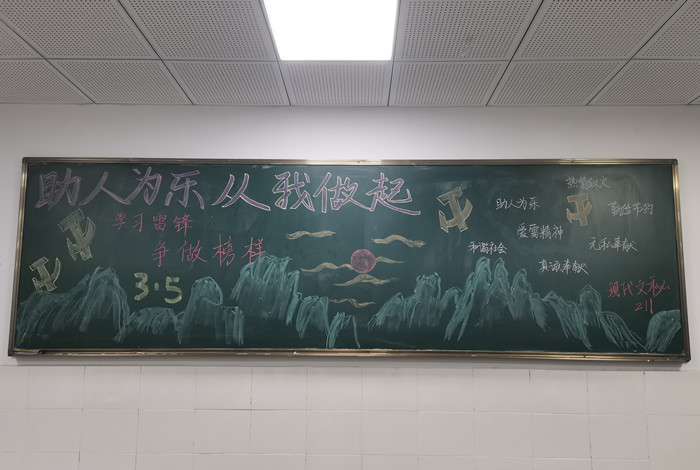 助人为乐从我做起
学习雷锋
争做榜样
3·5
助人为乐
爱雷精神
和谐社会
真诚奉献
无私奉献
勤俭节约
现代文秘
211